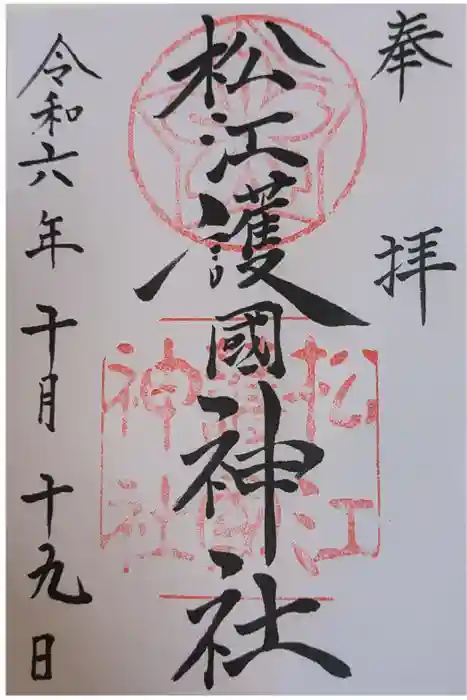 奉拝
松江護國神社
松江
護國
神社
令和六年十月十九日